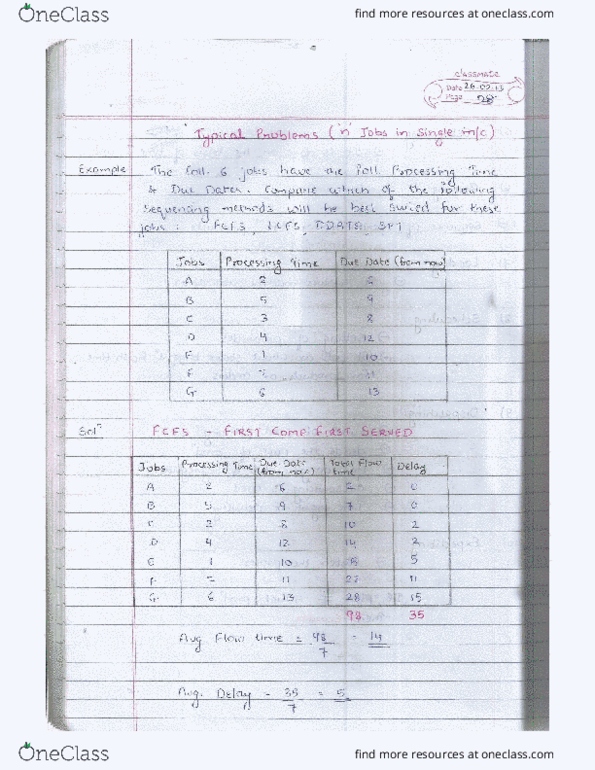 OneClass
find more resources at oneclass.com
classmate
Date
Page
Typical Problems ('n' Jobs in Single m/c)
Example The foll. 6 jobs have the foll. Processing Time
& Due Dates. Compare which of the following
Sequencing methods will be best suited for these
jobs: FCFS, LCFS, DDATE, SPT
Jobs Processing Time Due Date (from now)
A 2
B 5 9
C 3 8
D 4 12
1 10
F
G 6 13
Sol FCFS - FIRST COME FIRST SERVED
Jobs Processing Time Due Date (from now) Total Flow time Delay
A 2 6 2 0
B 5 9 7 0
8 10 2
D 4 12 14 2
E 1 10 5
11 11
G 6 13 28 15
98 35
Avg Flow time = 98/7 = 14
Avg. Delay = 35/7 = 5
OneClass
find more resources at oneclass.com